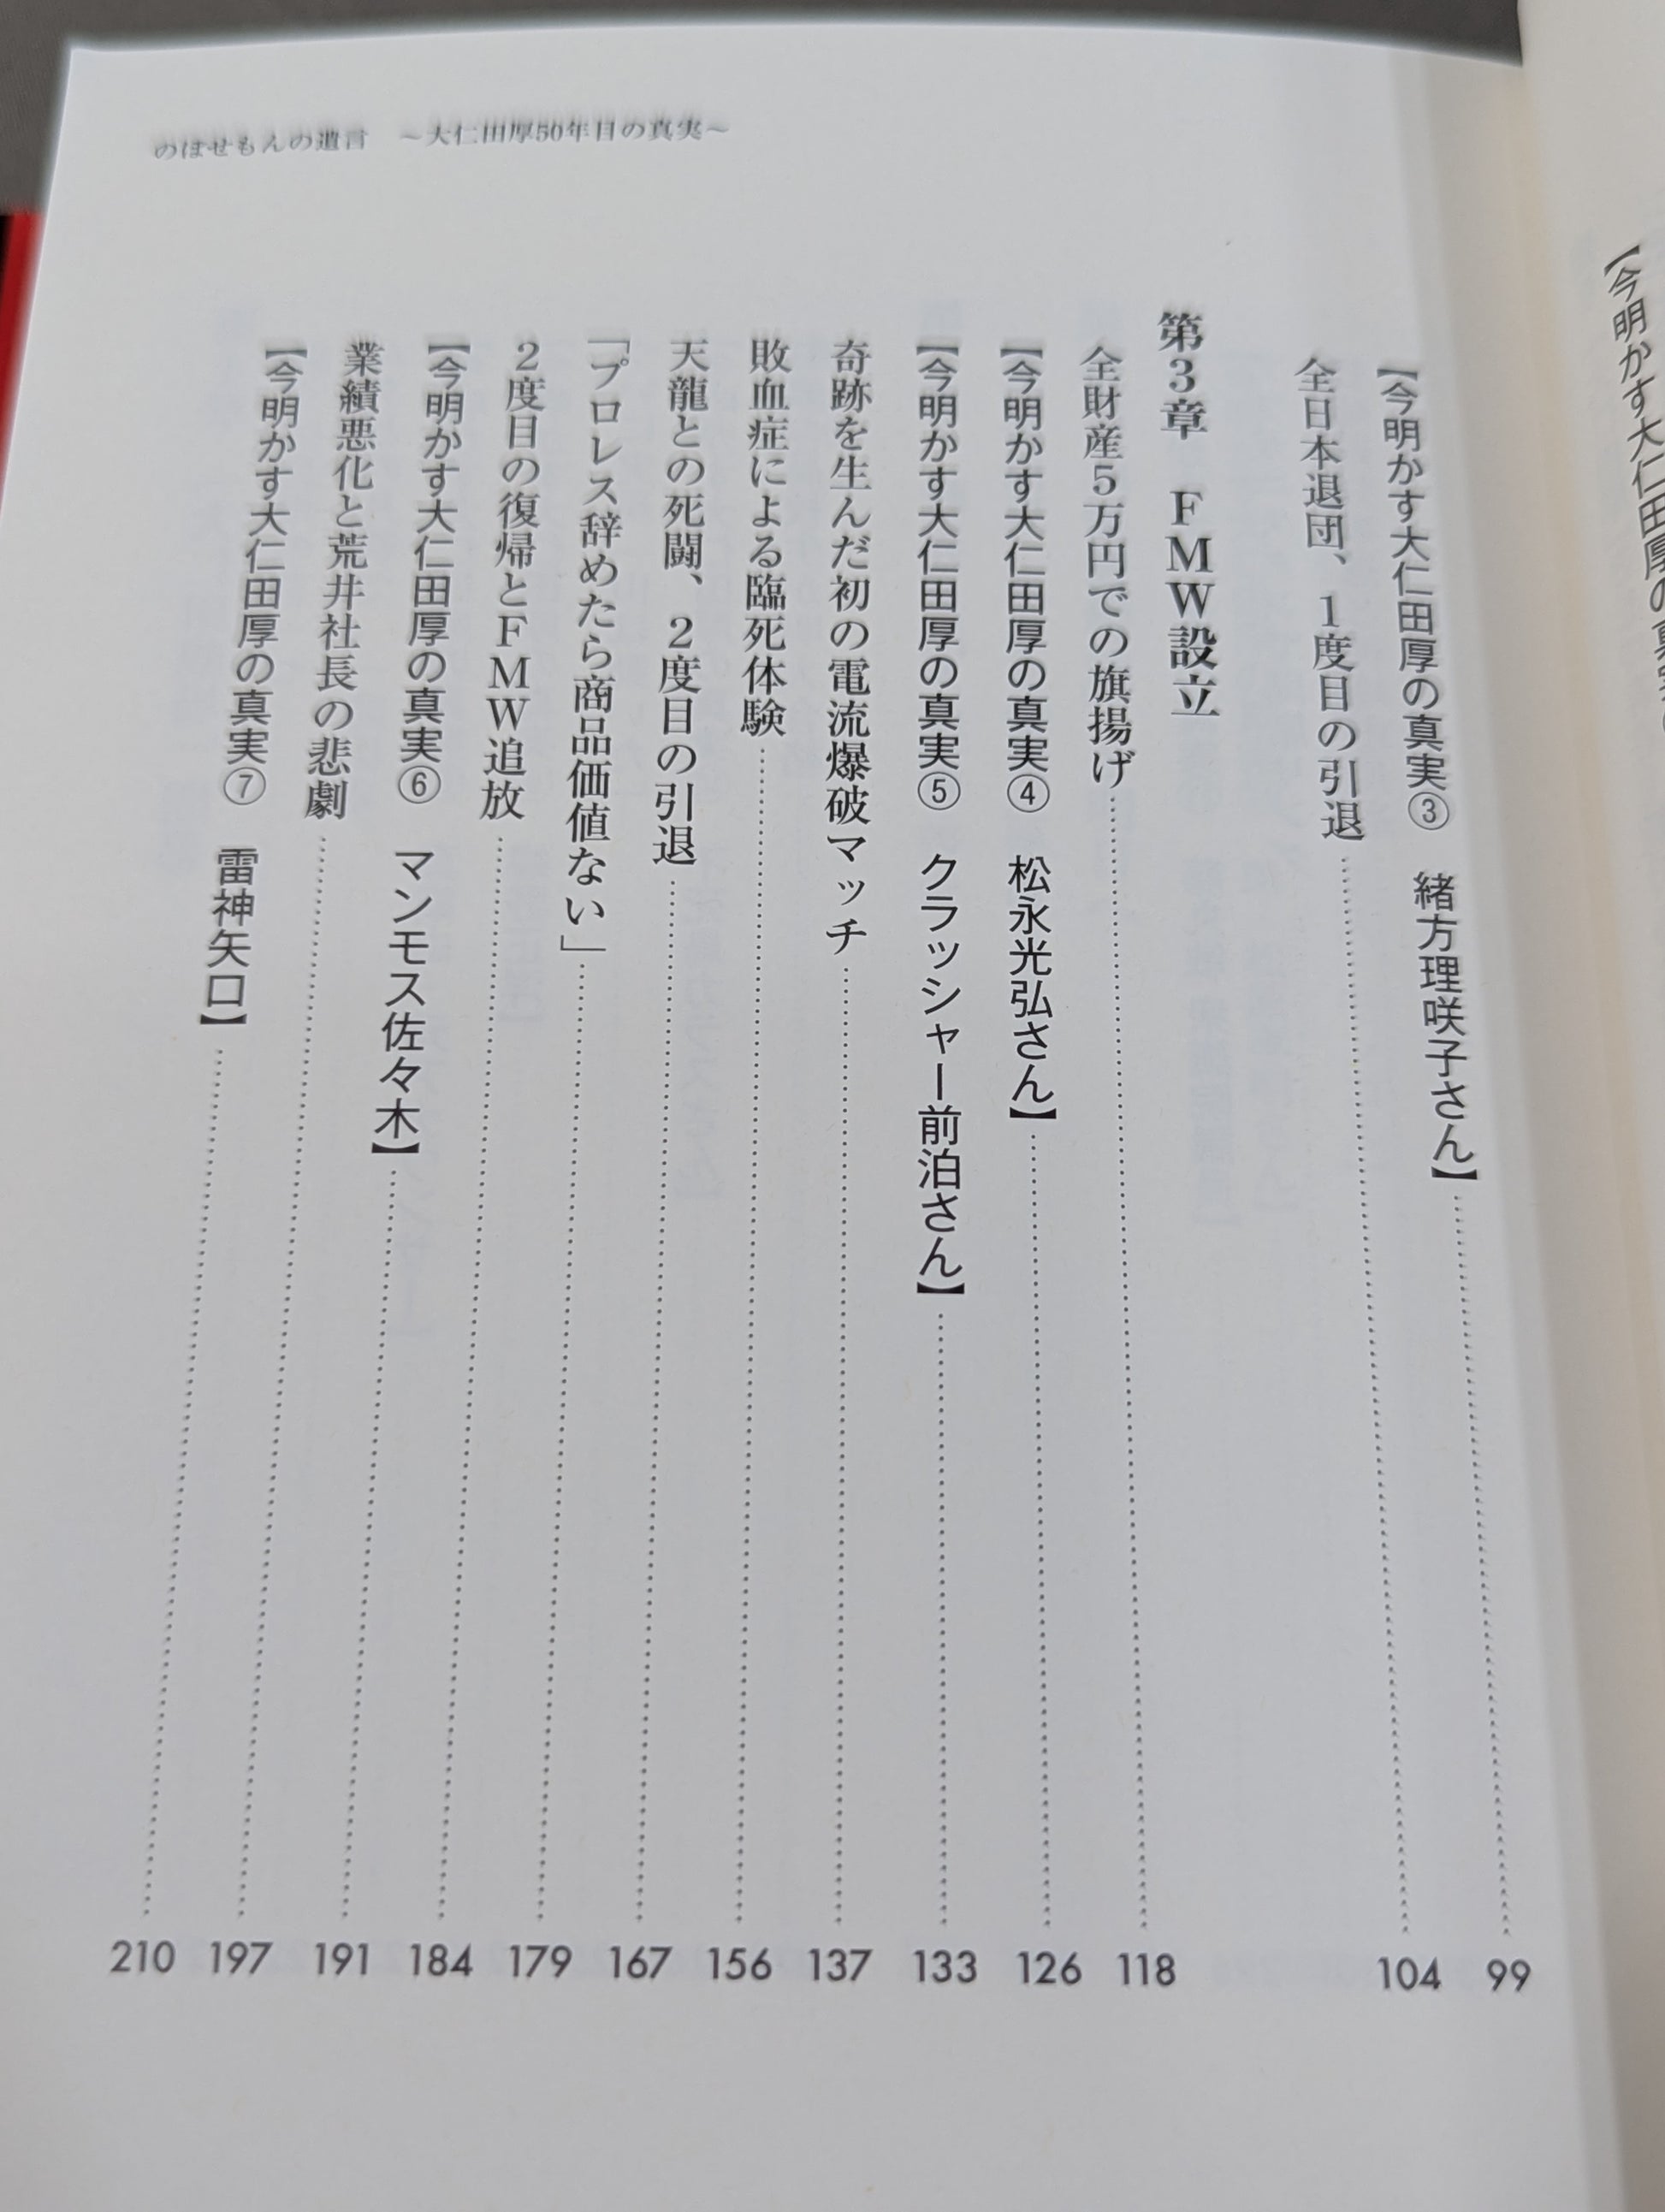 のぼせもんの遺言　～大仁田厚50年目の真実～
【今明かす大仁田厚の真実③　緒方理咲子さん】 99
全日本退団、1度目の引退 104
第3章　FMW設立
全財産5万円での旗揚げ 118
【今明かす大仁田厚の真実④　松永光弘さん】 126
【今明かす大仁田厚の真実⑤　クラッシャー前泊さん】 133
奇跡を生んだ初の電流爆破マッチ 137
敗血症による臨死体験 156
天龍との死闘、2度目の引退 167
「プロレス辞めたら商品価値ない」 179
2度目の復帰とFMW追放 184
【今明かす大仁田厚の真実⑥　マンモス佐々木】 191
業績悪化と荒井社長の悲劇 197
【今明かす大仁田厚の真実⑦　雷神矢口】 210
【今明かす大仁田厚の